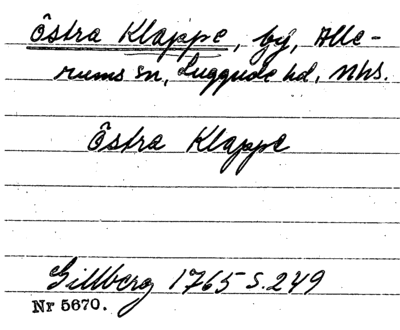 Östra Klappe, by, Alle-
rums sn, Luggude hd, Mhs.
Östra Klappe
Gillberg 1765 s. 249
Nr 5670.